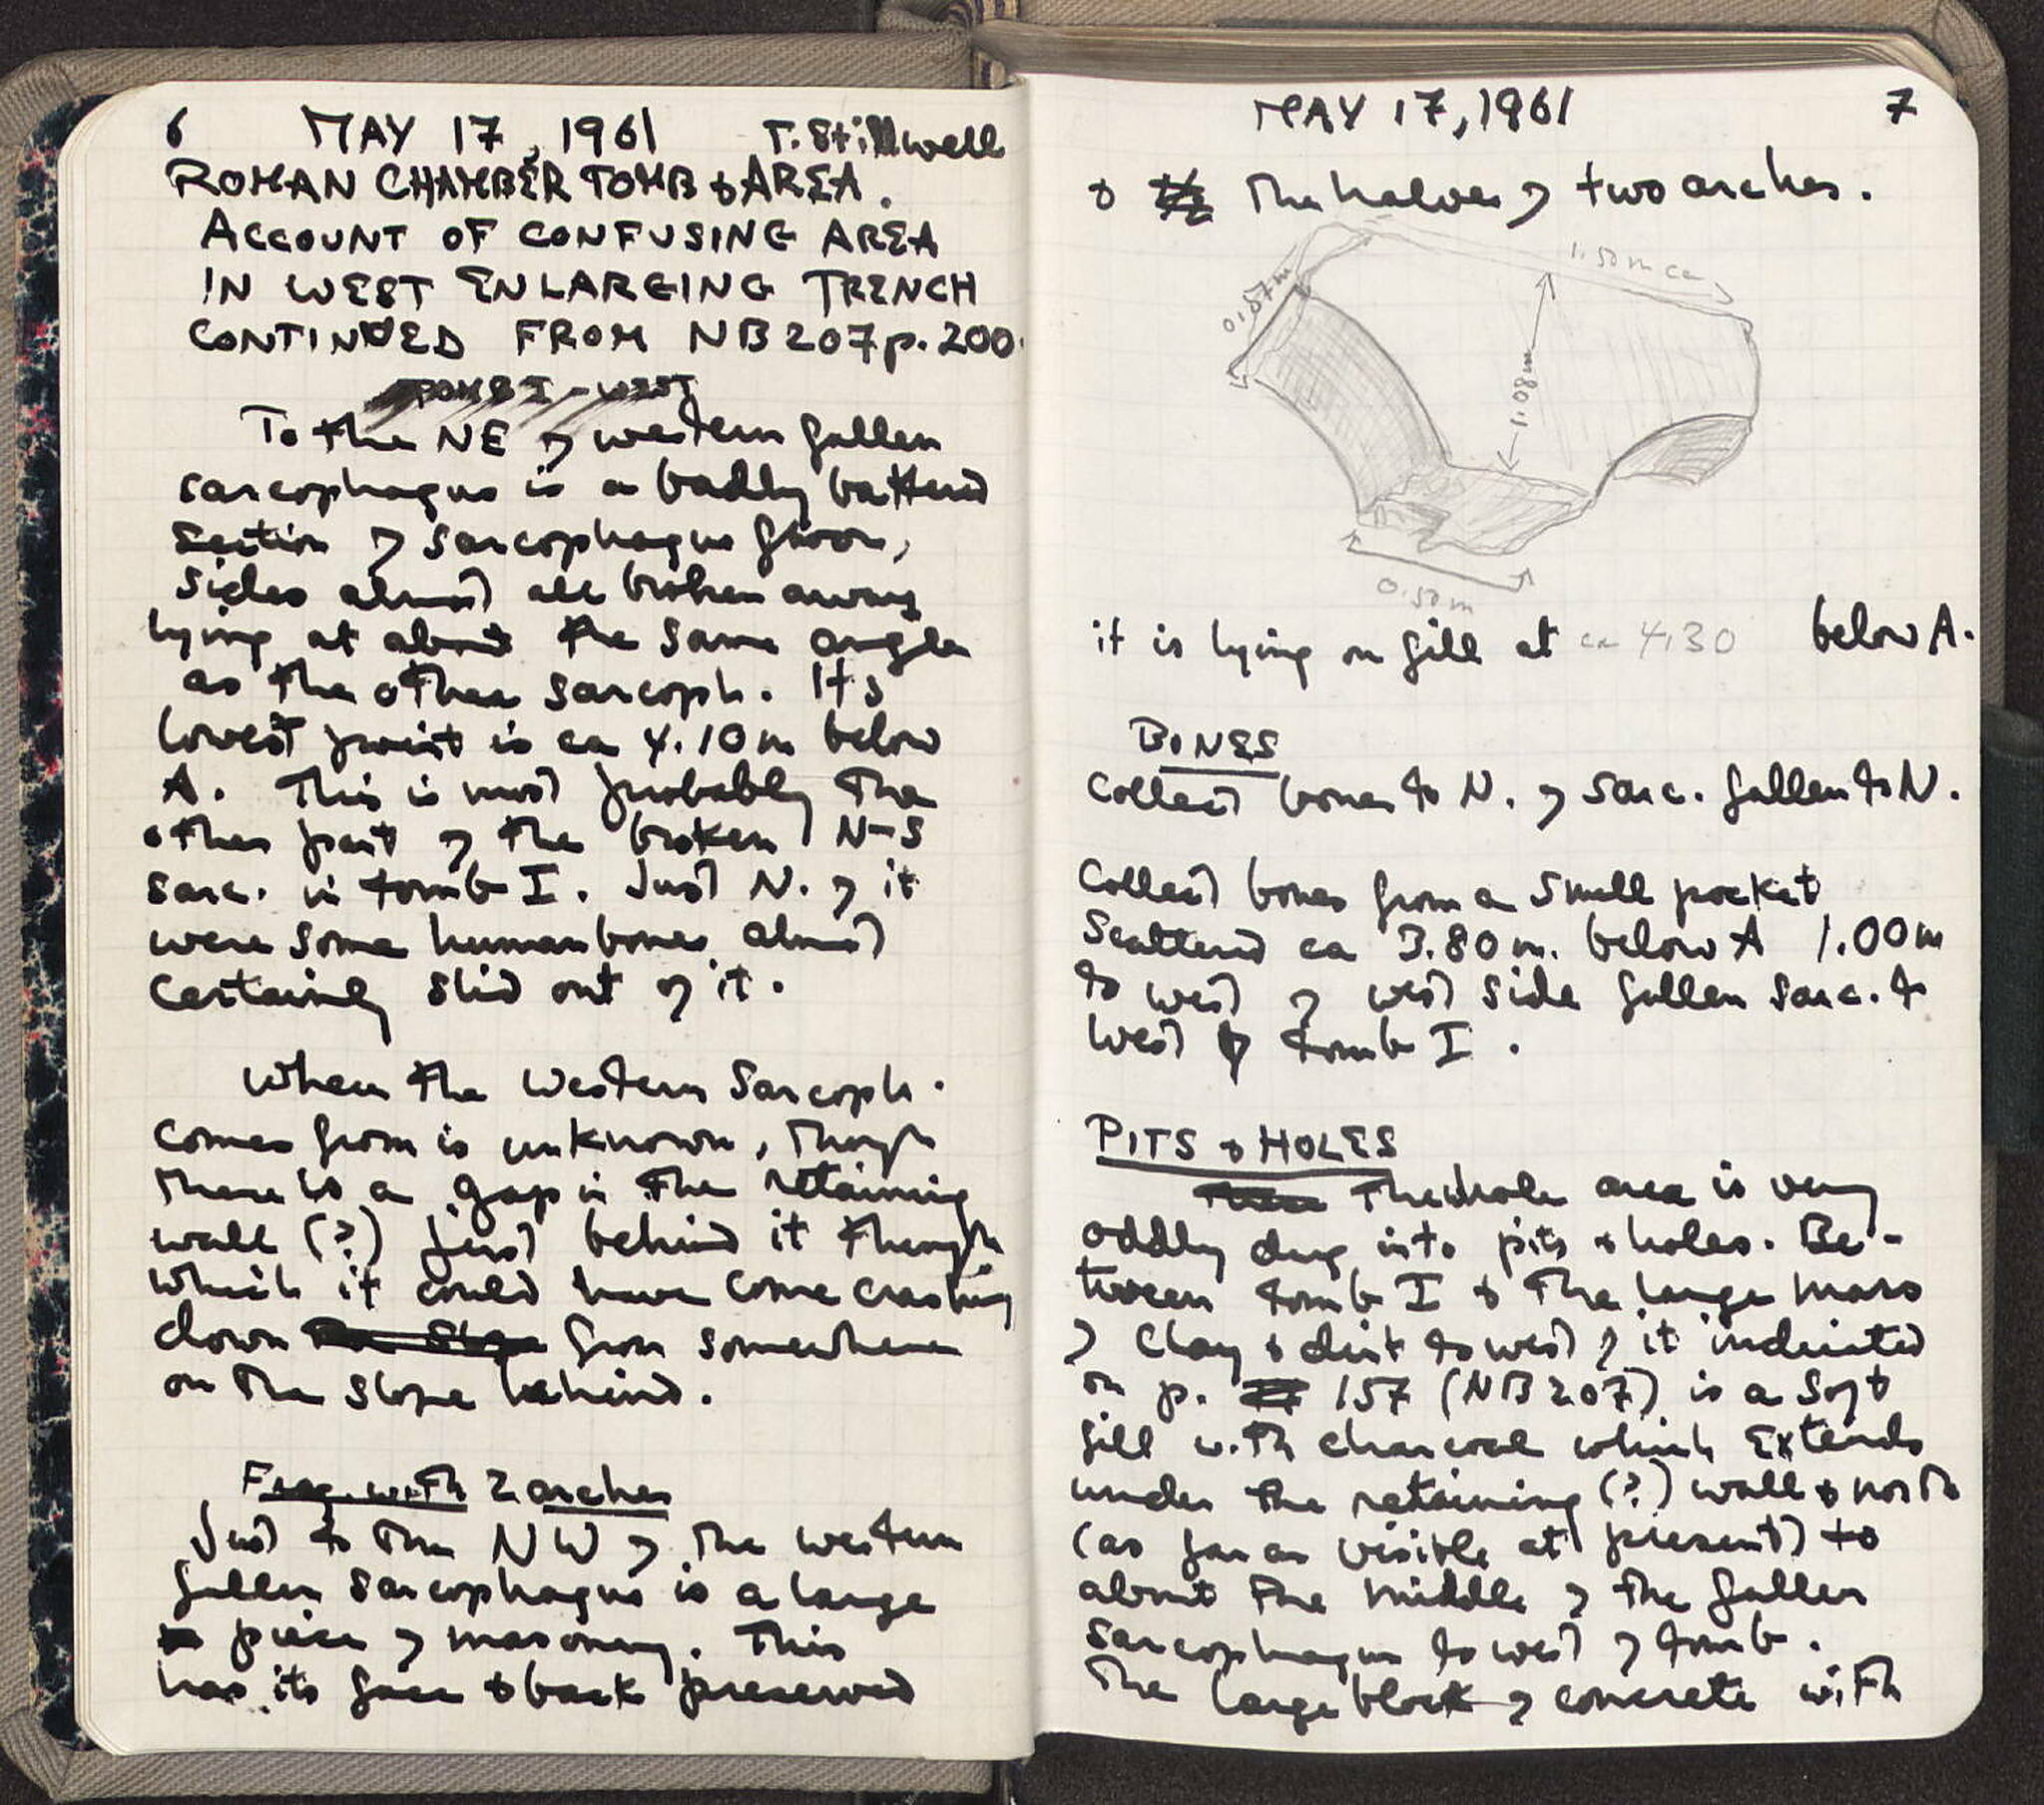 6 MAY 17, 1961 T. Stillwell
ROMAN CHAMBER TOMB & AREA.
ACCOUNT OF CONFUSING AREA
IN WEST ENLARGING TRENCH
CONTINUED FROM NB 207 p. 200.
TOMB I - WEST
To the NE of western fallen
sarcophagus is a badly battered
section of sarcophagus floor,
sides almost all broken away
lying at about the same angle
as the other sarcoph. Its
lowest point is ca 4.10 m below
A. This is most probably the
other part of the broken N-S
sarc. in tomb I. Just N. of it
were some human bones almost
certainly slid out of it.
When the western Sarcoph.
comes from is unknown, though
there is a gap in the retaining
wall (?) just behind it though
which it could have come crashing
down from somewhere
on the slope behind.
Frag. with 2 arches
Just to the NW of the western
fallen sarcophagus is a large
piece of masonry. This
has its face & back preserved
MAY 17, 1961 7
& the halves of two arches.
1.50 m ca
0.57 m
1.08 m
0.50 m
it is lying on fill at ca 4.30 below A.
BONES
Collect bones to N. of sarc. fallen to N.
Collect bones from a small pocket
scattered ca 3.80 m. below A 1.00 m
to west of west side fallen sarc. to
west of tomb I.
PITS & HOLES
The whole area is very
oddly dug into pits & holes. Be-
tween tomb I & the large mass
of clay & dirt to west of it indicated
on p. 157 (NB 207) is a soft
fill with charcoal which extends
under the retaining (?) wall & north
(as far as visible at present) to
about the middle of the fallen
sarcophagus to west of tomb.
The large block of concrete with